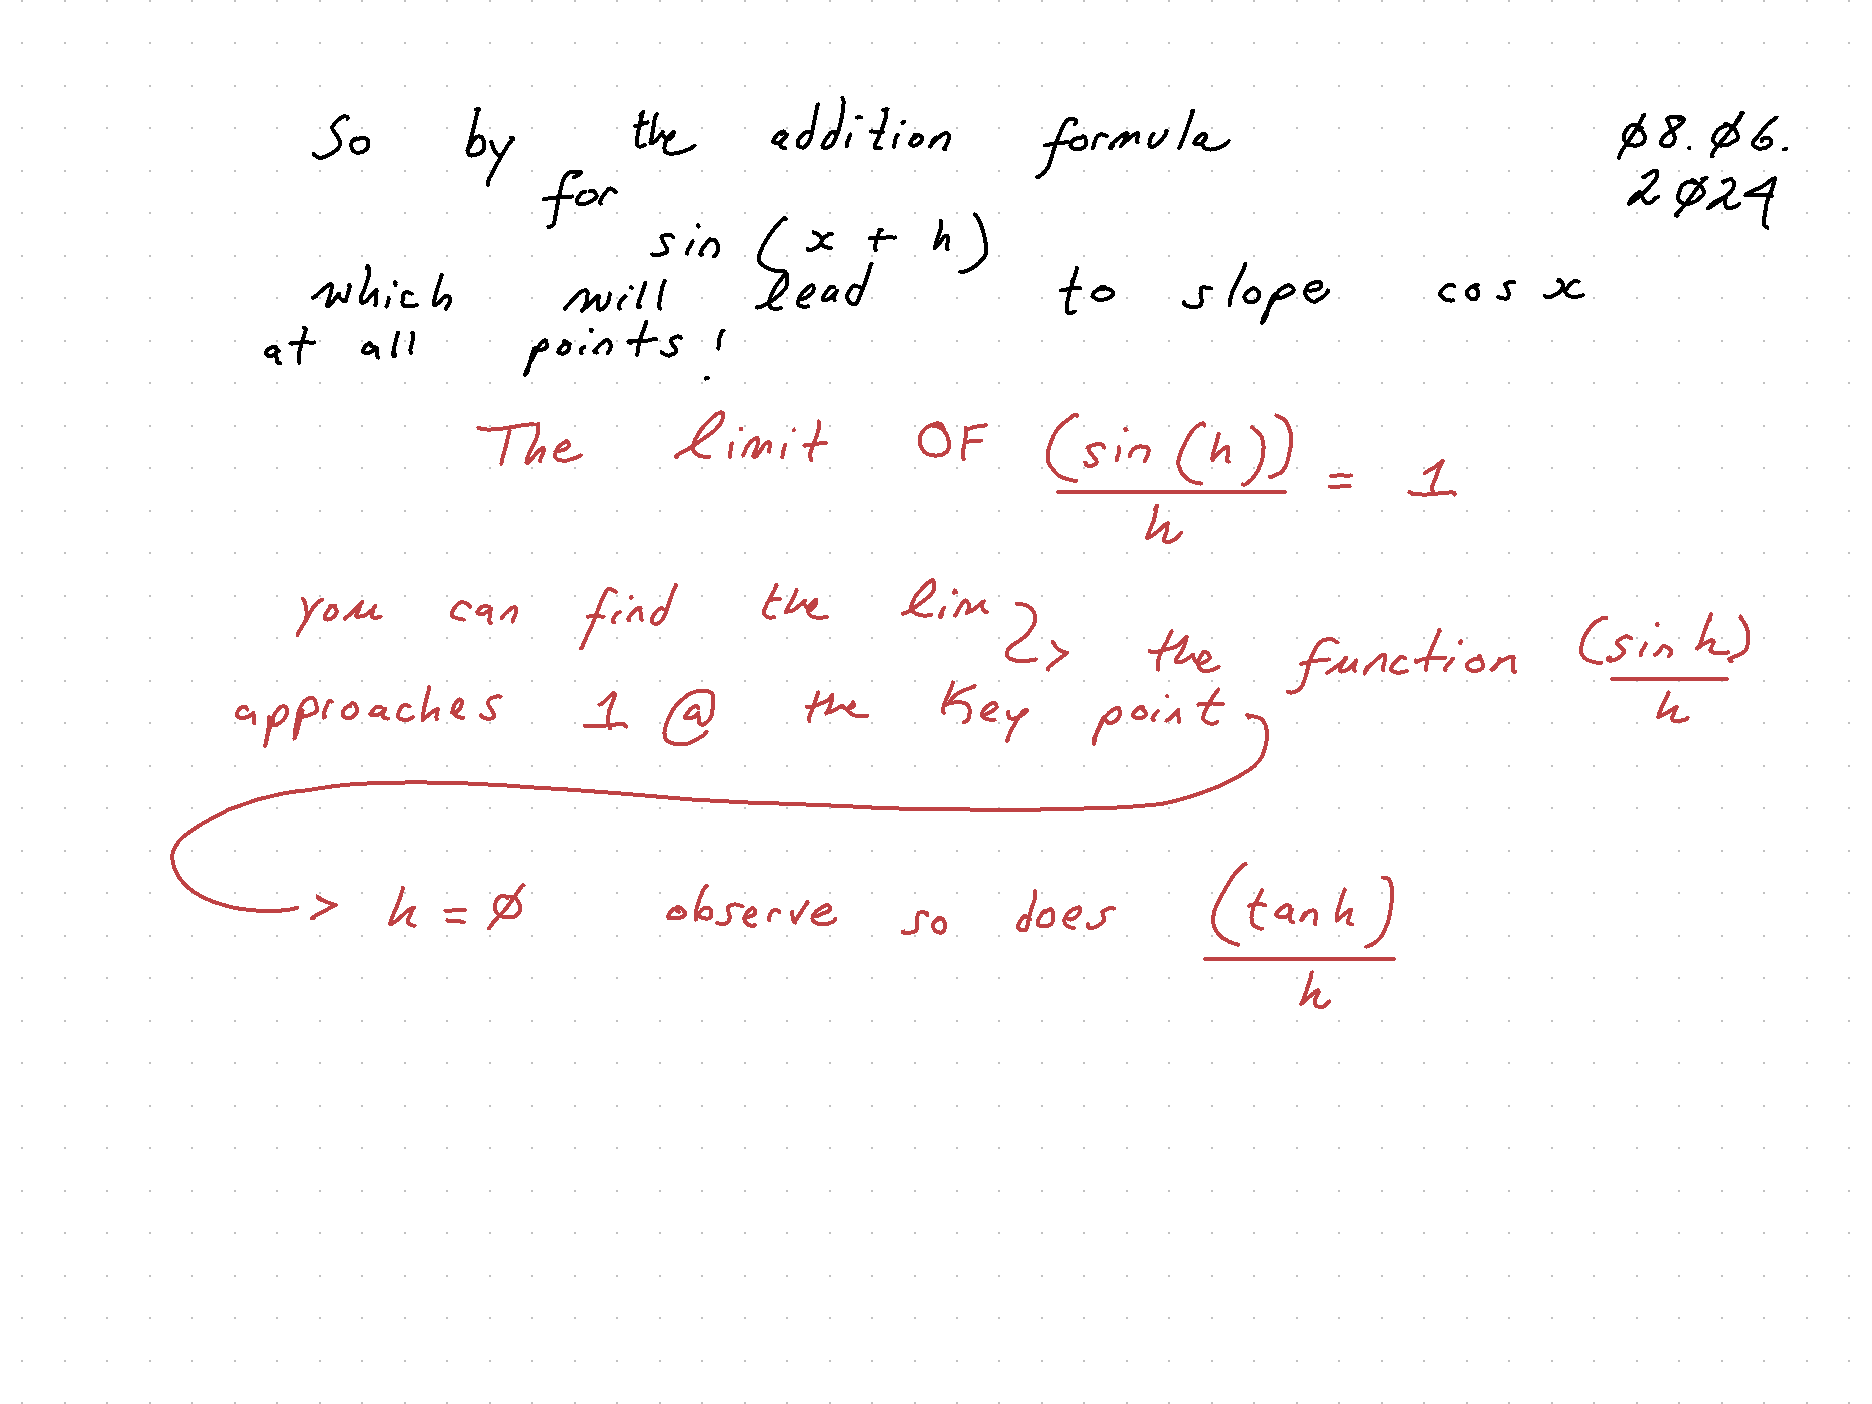 So by the addition formula
08.06.
2024
for
sin (x + h)
which will lead to slope cos x
at all points!
The limit OF (sin(h))/h = 1
you can find the lim
→ the function (sin h)/h
approaches 1 @ the Key point
→ h = 0 observe so does (tan h)/h